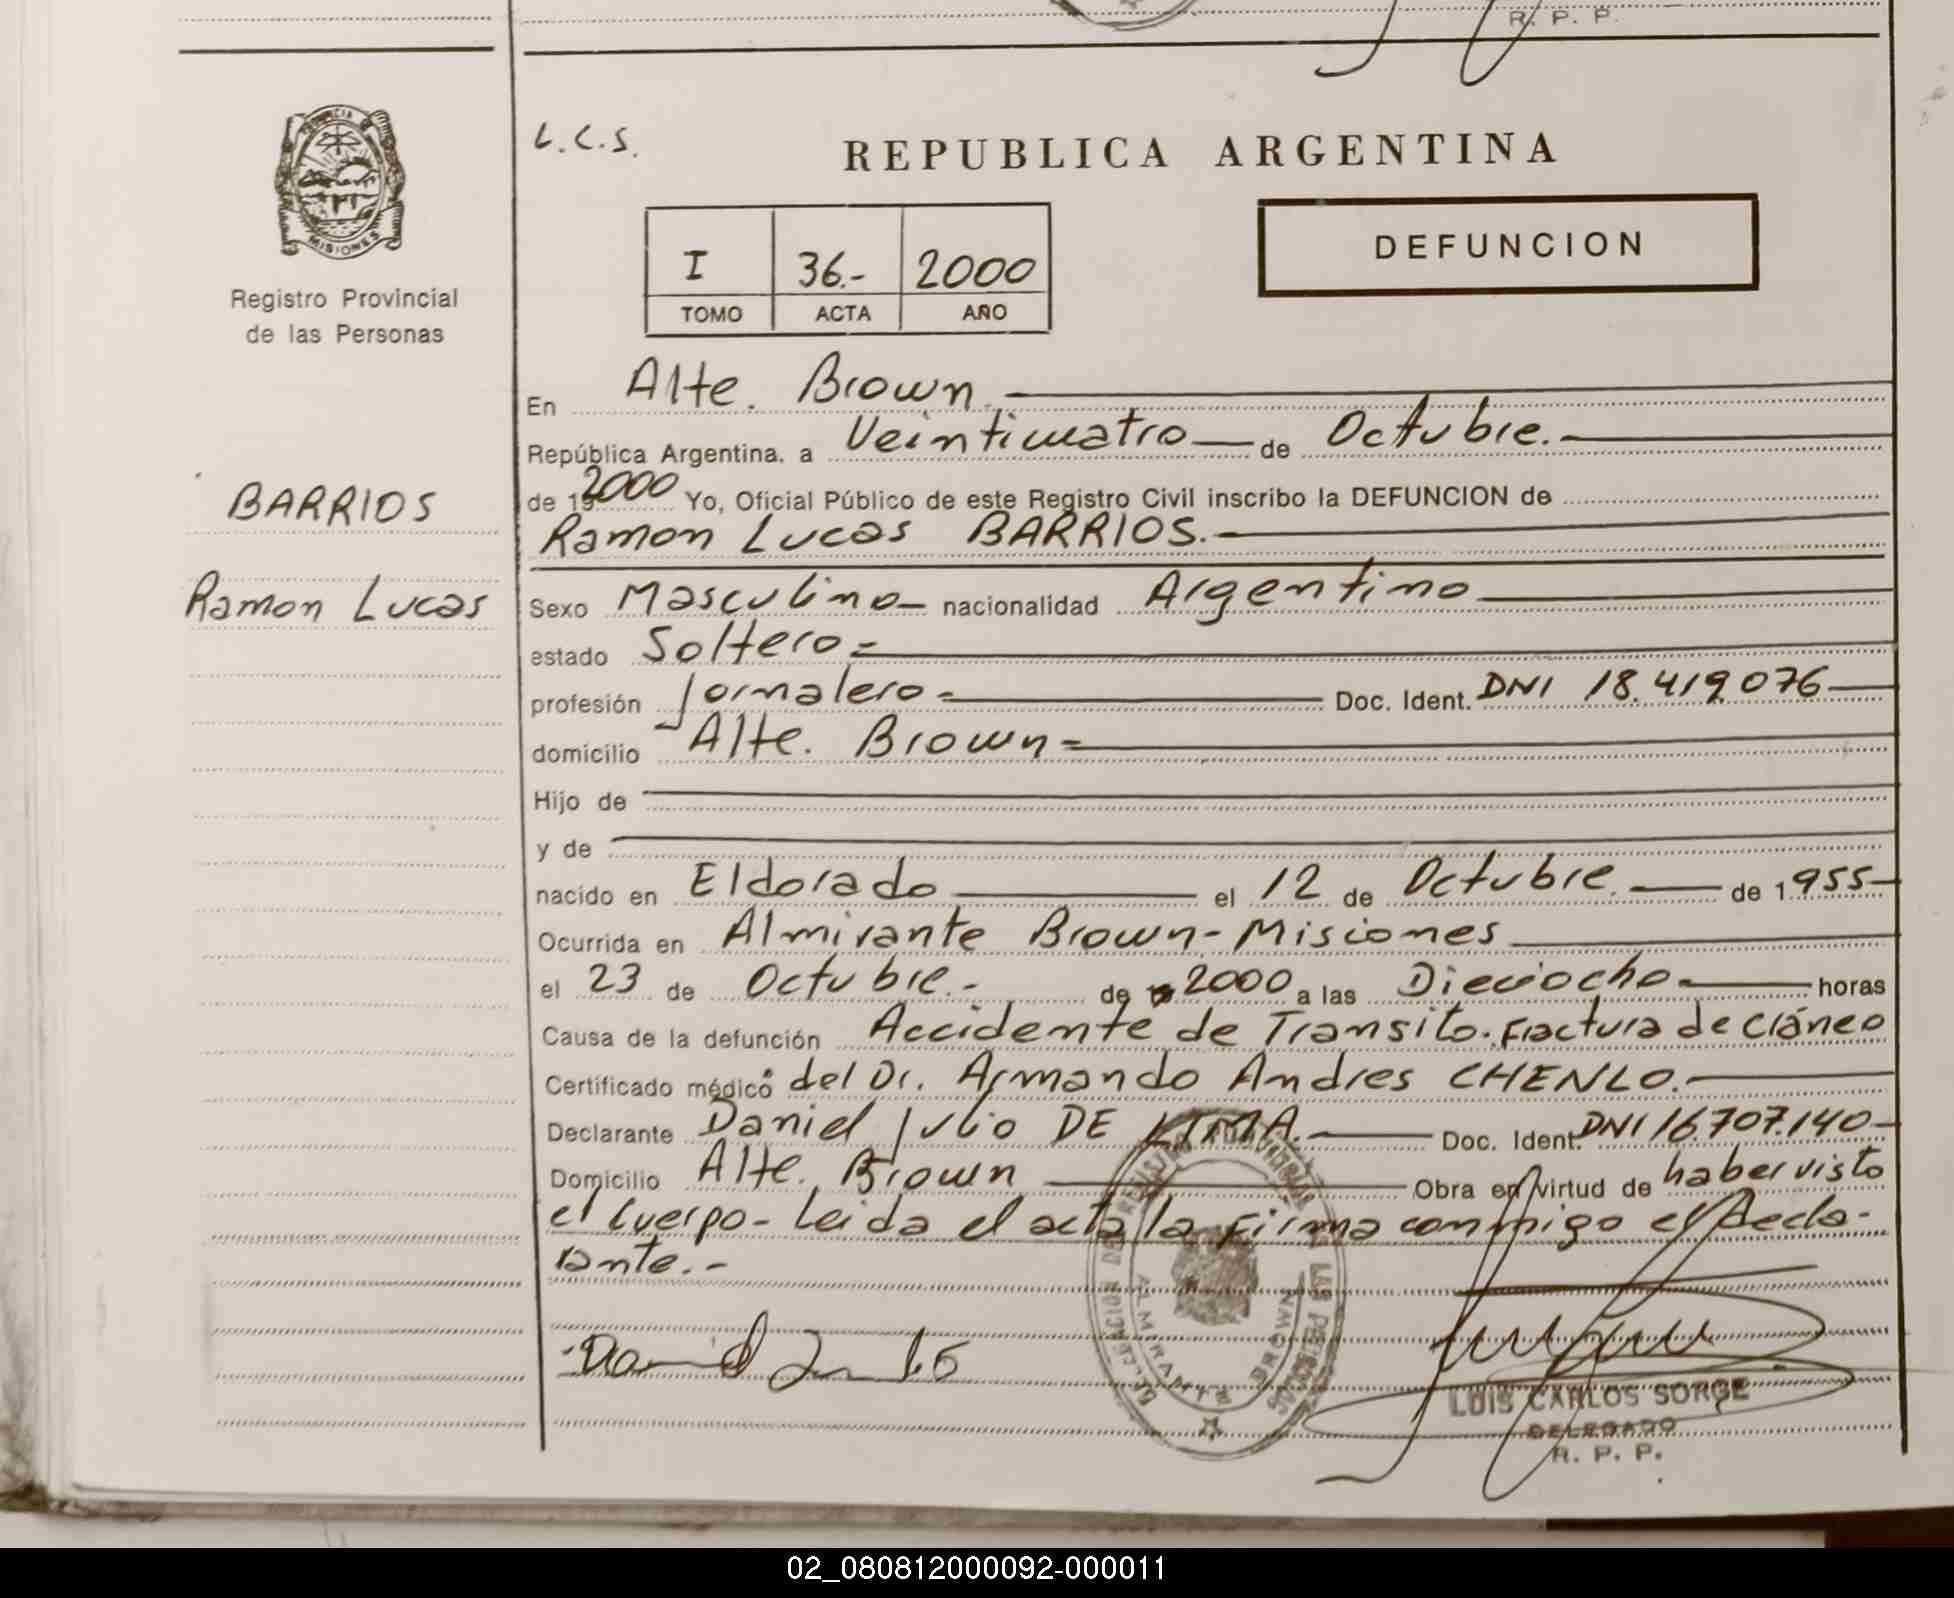 R. P. P.
PROVINCIA DE
MISIONES
Registro Provincial
de las Personas
BARRIOS
Ramon Lucas
L.C.S.
REPUBLICA ARGENTINA
I 36.- 2000
TOMO ACTA AÑO
DEFUNCION
En Alte. Brown.
República Argentina, a Veinticuatro de Octubre.-
de 19 2000 Yo, Oficial Público de este Registro Civil inscribo la DEFUNCION de
Ramon Lucas BARRIOS.-
Sexo Masculino nacionalidad Argentino
estado Soltero=
profesión Jornalero= Doc. Ident. DNI 18.419.076
domicilio Alte. Brown=
Hijo de
y de
nacido en Eldorado el 12 de Octubre. de 1955
Ocurrida en Almirante Brown-Misiones
el 23 de Octubre.- de 2000 a las Dieciocho horas
Causa de la defunción Accidente de Transito. Fractura de Cráneo
Certificado médico del Dr. Armando Andres CHENLO.-
Declarante Daniel Julio DE LIMA.- Doc. Ident. DNI 16.707.140
Domicilio Alte. Brown Obra en virtud de haber visto
el Cuerpo- Leida el acta la firma conmigo el decla-
rante.-
ALMIRANTE BROWN
Daniel
LUIS CARLOS SORGE
DELEGADO
R. P. P.
02_080812000092-000011